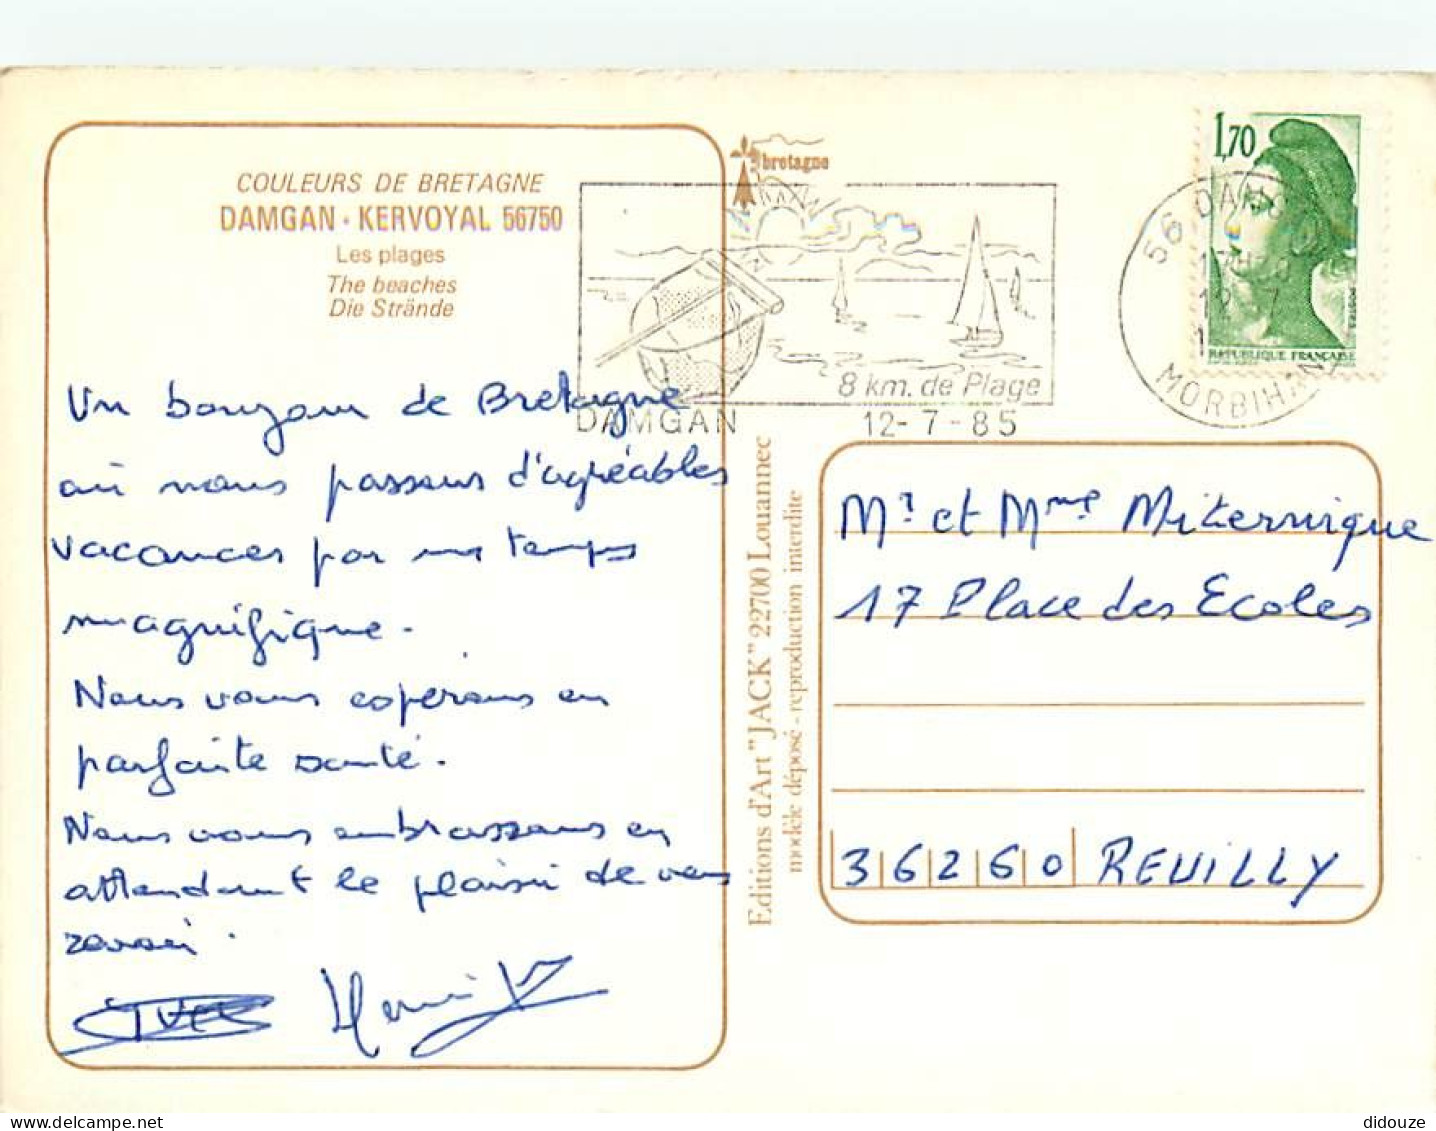 COULEURS DE BRETAGNE
DAMGAN - KERVOYAL 56750
Les plages
The beaches
Die Strände
Un bonjour de Bretagne
où nous passons d'agréables
vacances par un temps
magnifique.
Nous vous espérons en
parfaite santé.
Nous vous embrassons en
attendant le plaisir de vous
revoir.
bretagne
8 km. de Plage
DAMGAN
12-7-85
1,70
RÉPUBLIQUE FRANÇAISE
56 DAMG
12 7
MORBIHAN
Editions d'Art "JACK" 22700 Louannec
modèle déposé - reproduction interdite
Mr et Mme
17 Place des Ecoles
36260 REUILLY
didouze